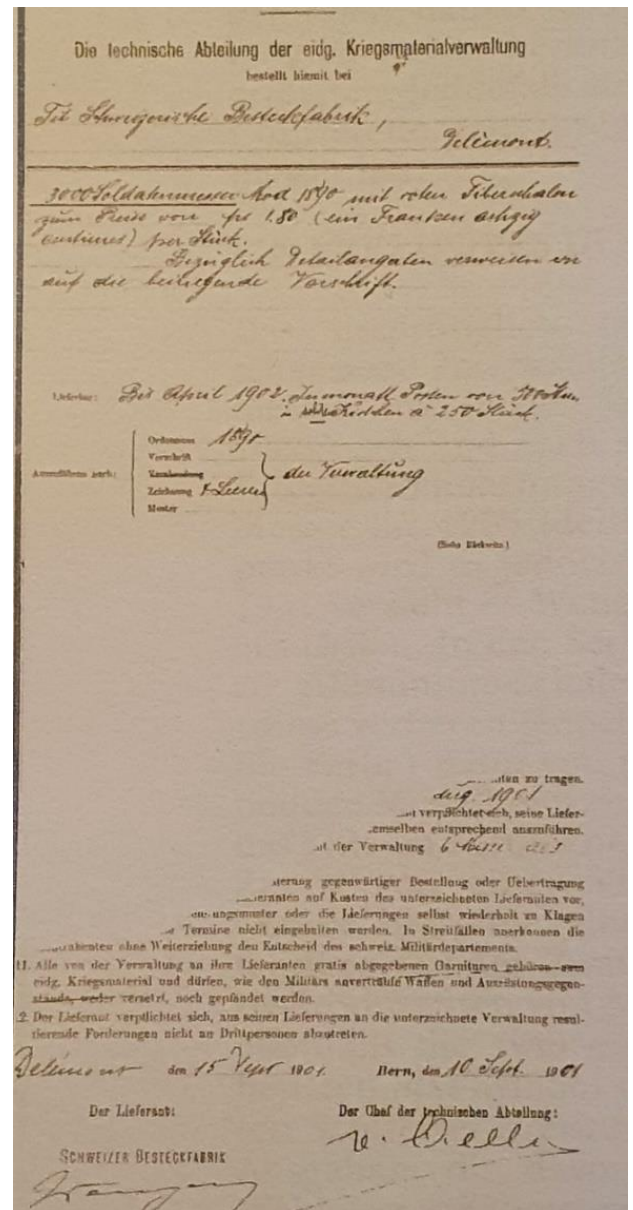 Die technische Abteilung der eidg. Kriegsmaterialverwaltung
bestellt hiemit bei
Tit Schweizerische Besteckfabrik,
Delémont.
3000 Soldatenmesser Mod 1890 mit roten Fiberschalen
zum Preise von frs 1.80 (ein Franken achzig
centimes) per Stück.
Bezüglich Detailangaben verweisen wir
auf die beiliegende Vorschrift.
Lieferbar: Bis April 1902. In monatl. Posten von 500 Stück
in Kistchen à 250 Stück.
Ordonnanz 1890
Vorschrift
Auszuführen nach: Zeichnung & Leeren der Verwaltung
Muster
(Siehe Rückseite.)
zu tragen.
Aug. 1901
verpflichtet sich, seine Liefer-
emselben entsprechend auszuführen.
der Verwaltung 6
gegenwärtiger Bestellung oder Uebertragung
eranten auf Kosten des unterzeichneten Lieferanten vor,
ungsmuster oder die Lieferungen selbst wiederholt zu Klagen
Termine nicht eingehalten werden. In Streitfällen anerkennen die
ohne Weiterziehung den Entscheid des schweiz. Militärdepartements.
11. Alle von der Verwaltung an ihre Lieferanten gratis abgegebenen Garnituren gehören zum
eidg. Kriegsmaterial und dürfen, wie den Militärs anvertraute Waffen und Ausrüstungsgegen-
stände, weder versetzt, noch gepfändet werden.
2. Der Lieferant verpflichtet sich, aus seinen Lieferungen an die unterzeichnete Verwaltung resul-
tierende Forderungen nicht an Drittpersonen abzutreten.
Delémont den 15 Sept 1901. Bern, den 10 Sept. 1901
Der Lieferant: Der Chef der technischen Abteilung:
SCHWEIZER BESTECKFABRIK